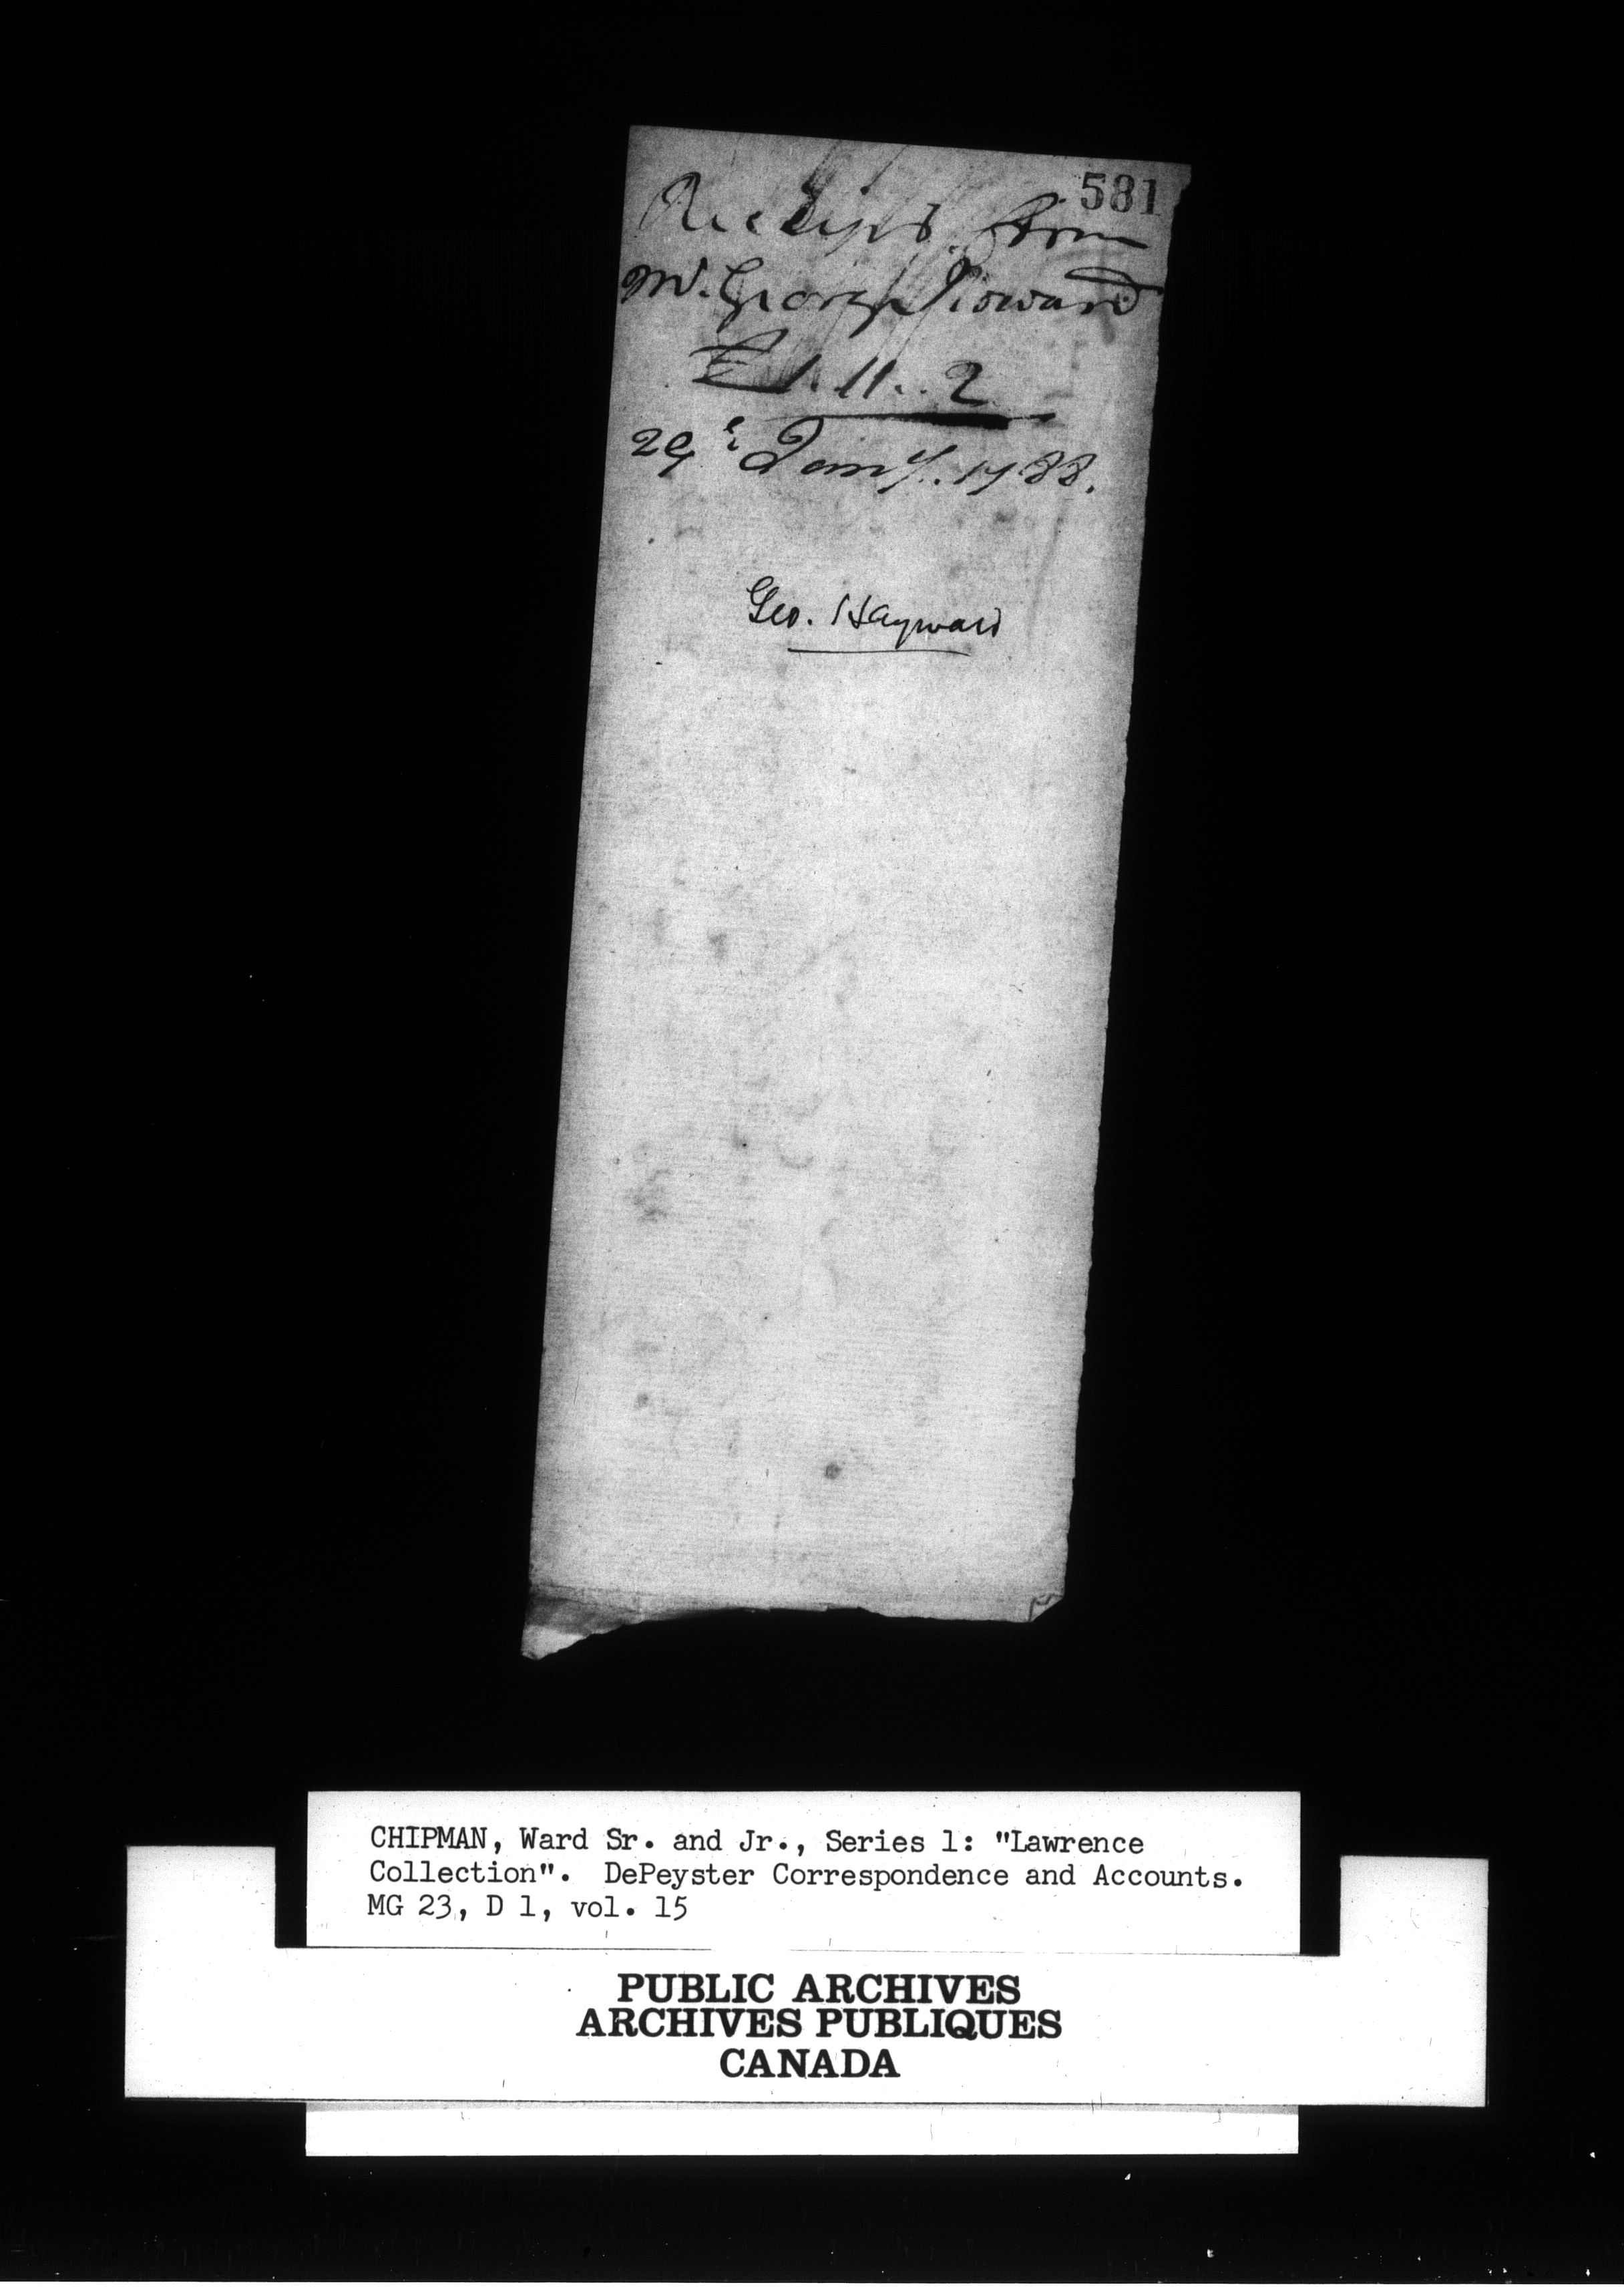 581
Reciepts from
Mr. George Howard
£1.11..2
29th Jany. 1788.
Geo. Hayward
CHIPMAN, Ward Sr. and Jr., Series 1: "Lawrence
Collection". DePeyster Correspondence and Accounts.
MG 23, D 1, vol. 15
PUBLIC ARCHIVES
ARCHIVES PUBLIQUES
CANADA